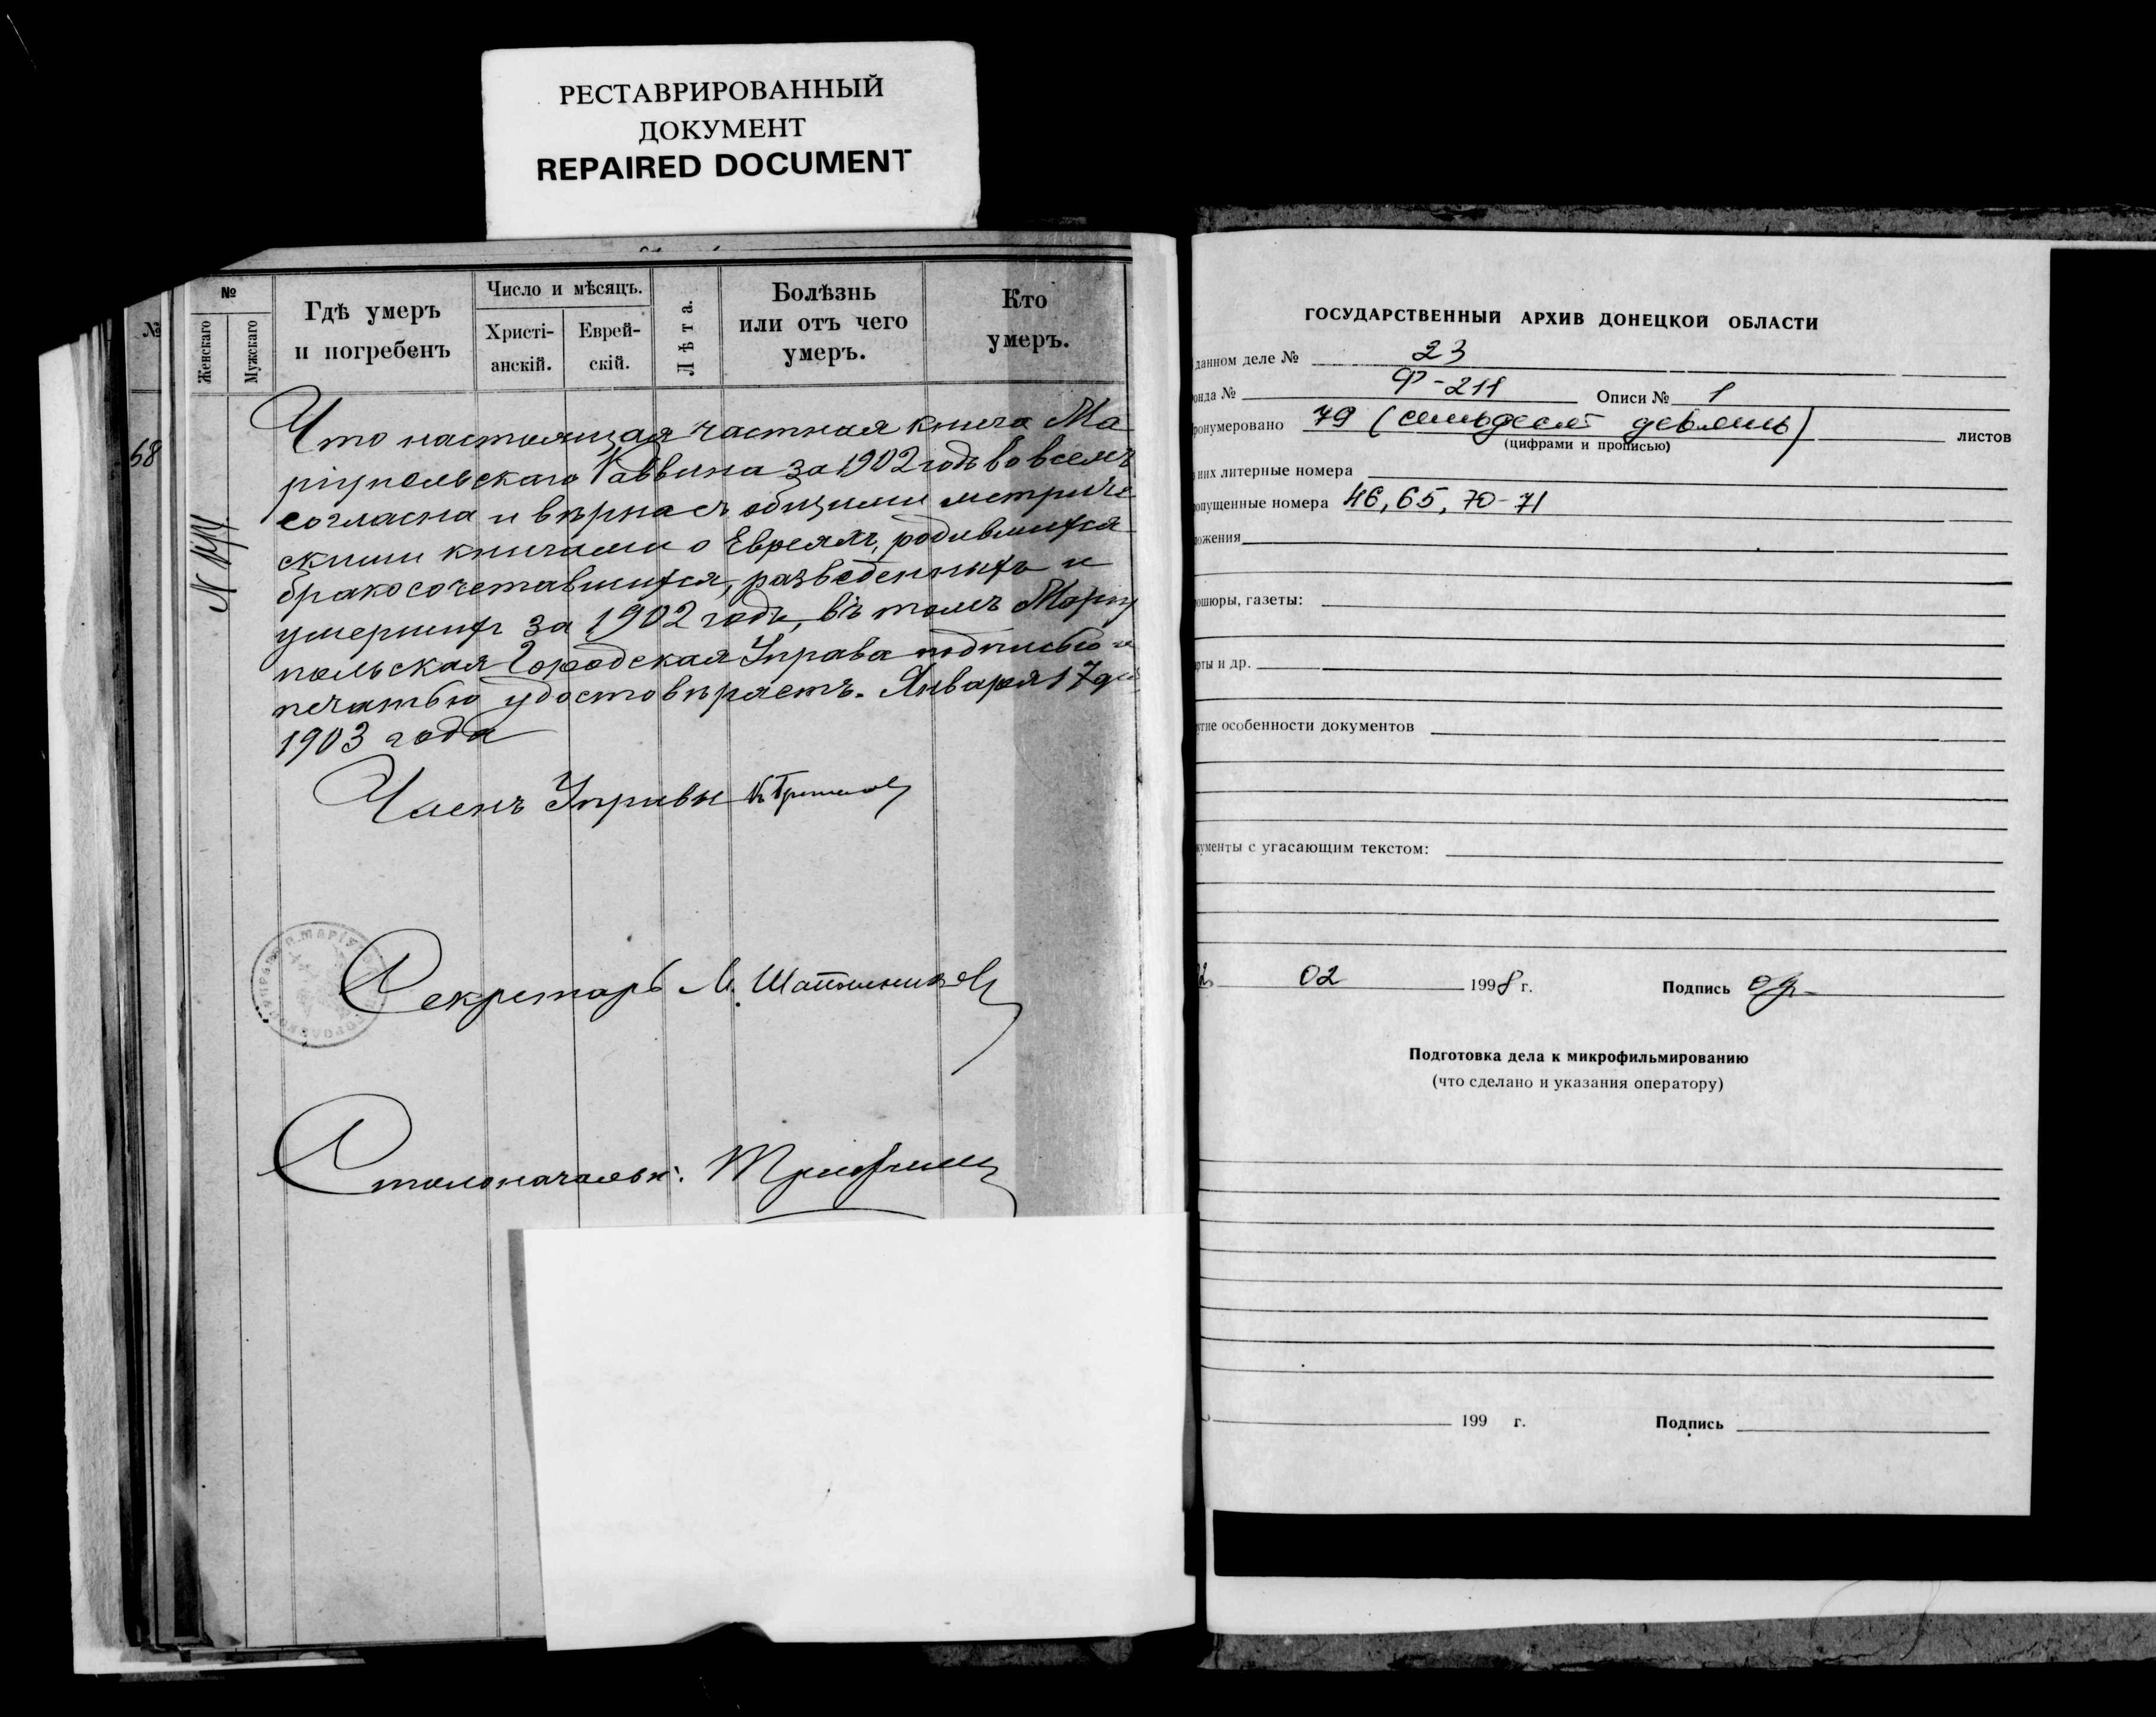 РЕСТАВРИРОВАННЫЙ
ДОКУМЕНТ
REPAIRED DOCUMENT
№
№
Женскаго
Мужскаго
Гдѣ умеръ
и погребенъ
Число и мѣсяцъ.
Христі-
анскій.
Еврей-
скій.
Лѣта.
Болѣзнь
или отъ чего
умеръ.
Кто
умеръ.
68
Что настоящая частная книга Ма
ріупольскаго Раввина за 1902 годъ во всемъ
согласна и вѣрна съ общими метриче
скими книгами о Евреяхъ, родившихся
бракосочетавшихся, разведенныхъ и
умершихъ за 1902 годъ, въ томъ Маріу
польская Городская Управа подписью и
печатью удостовѣряетъ. Января 17
1903 года
Членъ Управы
Секретарь
Столоначальн.
ГОСУДАРСТВЕННЫЙ АРХИВ ДОНЕЦКОЙ ОБЛАСТИ
данном деле № 23
онда № Ф-211 Описи № 1
ронумеровано 79 (семьдесят девять) листов
(цифрами и прописью)
них литерные номера
опущенные номера 46, 65, 70-71
ожения
ошюры, газеты:
рты и др.
угие особенности документов
кументы с угасающим текстом:
02 1998 г. Подпись
Подготовка дела к микрофильмированию
(что сделано и указания оператору)
199 г. Подпись